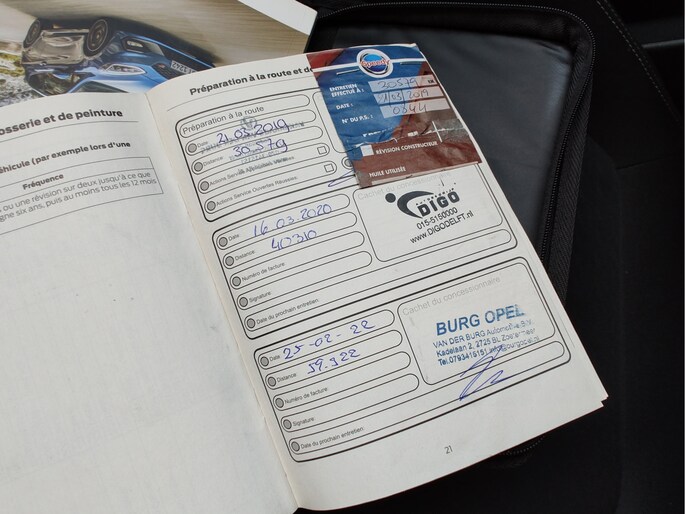 osserie et de peinture
éhicule (par exemple lors d'une
Fréquence
ou une révision sur deux jusqu'à ce que
gne six ans, puis au moins tous les 12 mois
Préparation à la route et de
Préparation à la route
Date 21.03.2019
Distance 30.579
Actions Service
Actions Service Ouvertes Réussies
Speedy
ENTRETIEN
EFFECTUÉ À : 30579
DATE : 21/03/2019
N° DU P.S. : 0344
RÉVISION CONSTRUCTEUR
HUILE UTILISÉE
Date: 16.03.2020
Distance: 40310
Numéro de facture:
Signature
Date du prochain entretien:
Cachet du concessionnaire
DIGO
015-5150000
www.DIGODELFT.nl
Date: 25-02-22
Distance: 59.322
Numéro de facture:
Signature
Date du prochain entretien:
Cachet du concessionnaire
BURG OPEL
VAN DER BURG Automotive B.V.
Kadelaan 2, 2725 BL Zoetermeer
Tel.0793415151
21